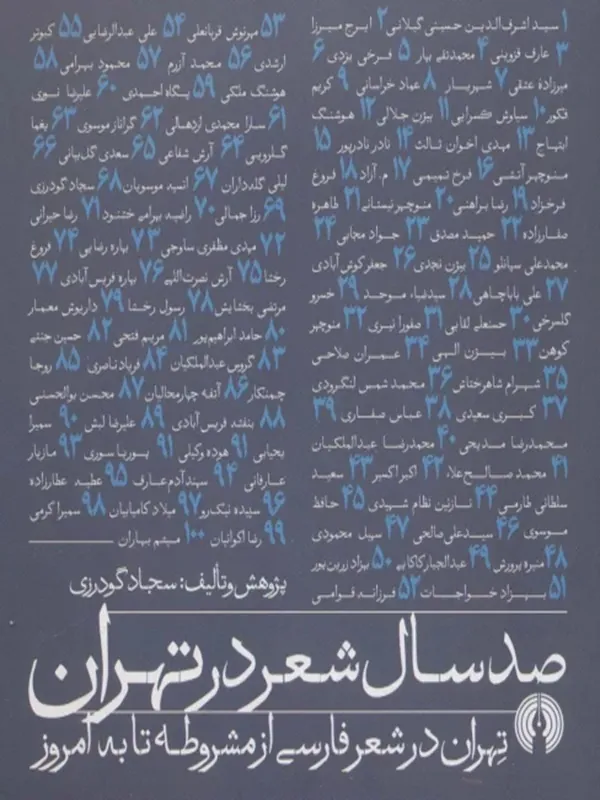 ۱ سید اشرف‌الدین حسینی گیلانی ۲ ایرج میرزا
۳ عارف قزوینی ۴ محمدتقی بهار ۵ فرخی یزدی ۶
میرزاده عشقی ۷ شهریار ۸ عماد خراسانی ۹ کریم
فکور ۱۰ سیاوش کسرایی ۱۱ بیژن جلالی ۱۲ هوشنگ
ابتهاج ۱۳ مهدی اخوان ثالث ۱۴ نادر نادرپور ۱۵
منوچهر آتشی ۱۶ فرخ تمیمی ۱۷ م. آزاد ۱۸ فروغ
فرخزاد ۱۹ رضا براهنی ۲۰ منوچهر نیستانی ۲۱ طاهره
صفارزاده ۲۲ حمید مصدق ۲۳ جواد مجابی ۲۴
محمدعلی سپانلو ۲۵ بیژن نجدی ۲۶ جعفر کوش‌آبادی
۲۷ علی باباچاهی ۲۸ سیدضیاء موحد ۲۹ خسرو
گلسرخی ۳۰ حسنعلی لقایی ۳۱ صفورا نیری ۳۲ منوچهر
کوهن ۳۳ بیژن الهی ۳۴ عمران صلاحی
۳۵ شهرام شاهرختاش ۳۶ محمد شمس لنگرودی
۳۷ کبری سعیدی ۳۸ عباس صفاری ۳۹
محمدرضا مدیحی ۴۰ محمدرضا عبدالملکیان
۴۱ محمد صالح علاء ۴۲ اکبر اکسیر ۴۳ سعید
سلطانی طارمی ۴۴ نازنین نظام شهیدی ۴۵ حافظ
موسوی ۴۶ سیدعلی صالحی ۴۷ سهیل محمودی
۴۸ منیره پرورش ۴۹ عبدالجبار کاکایی ۵۰ بهزاد زرین‌پور
۵۱ بهزاد خواجات ۵۲ فرزانه قوامی
۵۳ مهرنوش قربانعلی ۵۴ علی عبدالرضایی ۵۵ کبوتر
ارشدی ۵۶ محمد آزرم ۵۷ محمود بهرامی ۵۸
هوشنگ ملکی ۵۹ پگاه احمدی ۶۰ علیرضا نوری
۶۱ سارا محمدی اردهالی ۶۲ گراناز موسوی ۶۳ یغما
گلرویی ۶۴ آرش شفاعی ۶۵ سعدی گل‌بیانی ۶۶
لیلی گله‌داران ۶۷ انسیه موسویان ۶۸ سجاد گودرزی
۶۹ رزا جمالی ۷۰ راضیه بهرامی خشنود ۷۱ رضا حیرانی
۷۲ مهدی مظفری ساوجی ۷۳ بهاره رضایی ۷۴ فروغ
رخشا ۷۵ آرش نصرت‌اللهی ۷۶ بهاره فریس‌آبادی ۷۷
مرتضی بخشایش ۷۸ رسول رخشا ۷۹ داریوش معمار
۸۰ حامد ابراهیم‌پور ۸۱ مریم فتحی ۸۲ حسین جنتی
۸۳ گروس عبدالملکیان ۸۴ فریاد ناصری ۸۵ روجا
چمنکار ۸۶ آتفه چهارمحالیان ۸۷ محسن بوالحسنی
۸۸ بنفشه فریس‌آبادی ۸۹ علیرضا لبش ۹۰ سمیرا
یحیایی ۹۱ هوده وکیلی ۹۱ پوریا سوری ۹۳ مازیار
عارفانی ۹۴ سپندآدم عارف ۹۵ عطیه عطارزاده
۹۶ سپیده نیک‌رو ۹۷ میلاد کامیابیان ۹۸ سمیرا کرمی
۹۹ رضا اکوانیان ۱۰۰ میثم بهاران
پژوهش و تألیف: سجاد گودرزی
صد سال شعر در تهران
تهران در شعر فارسی از مشروطه تا به امروز